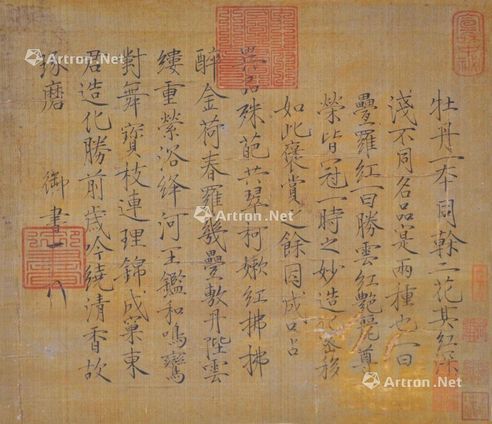 牡丹一本同榦二花其紅深
淺不同名品寔兩種也一曰
疊羅紅一曰勝雲紅艷麗尊
榮皆冠一時之妙造化密移
如此褒賞之餘因成口占
異品殊葩共翠柯嫩紅拂拂
醉金荷春羅幾疊敷丹陛雲
縷重縈浴絳河玉鑑和鳴鸞
對舞寶枝連理錦成窠東
君造化勝前歲吟繞清香故
琢磨
御書
Artron.Net
Artron.Net
Artron.Net
Artron.Net
Artron.Net